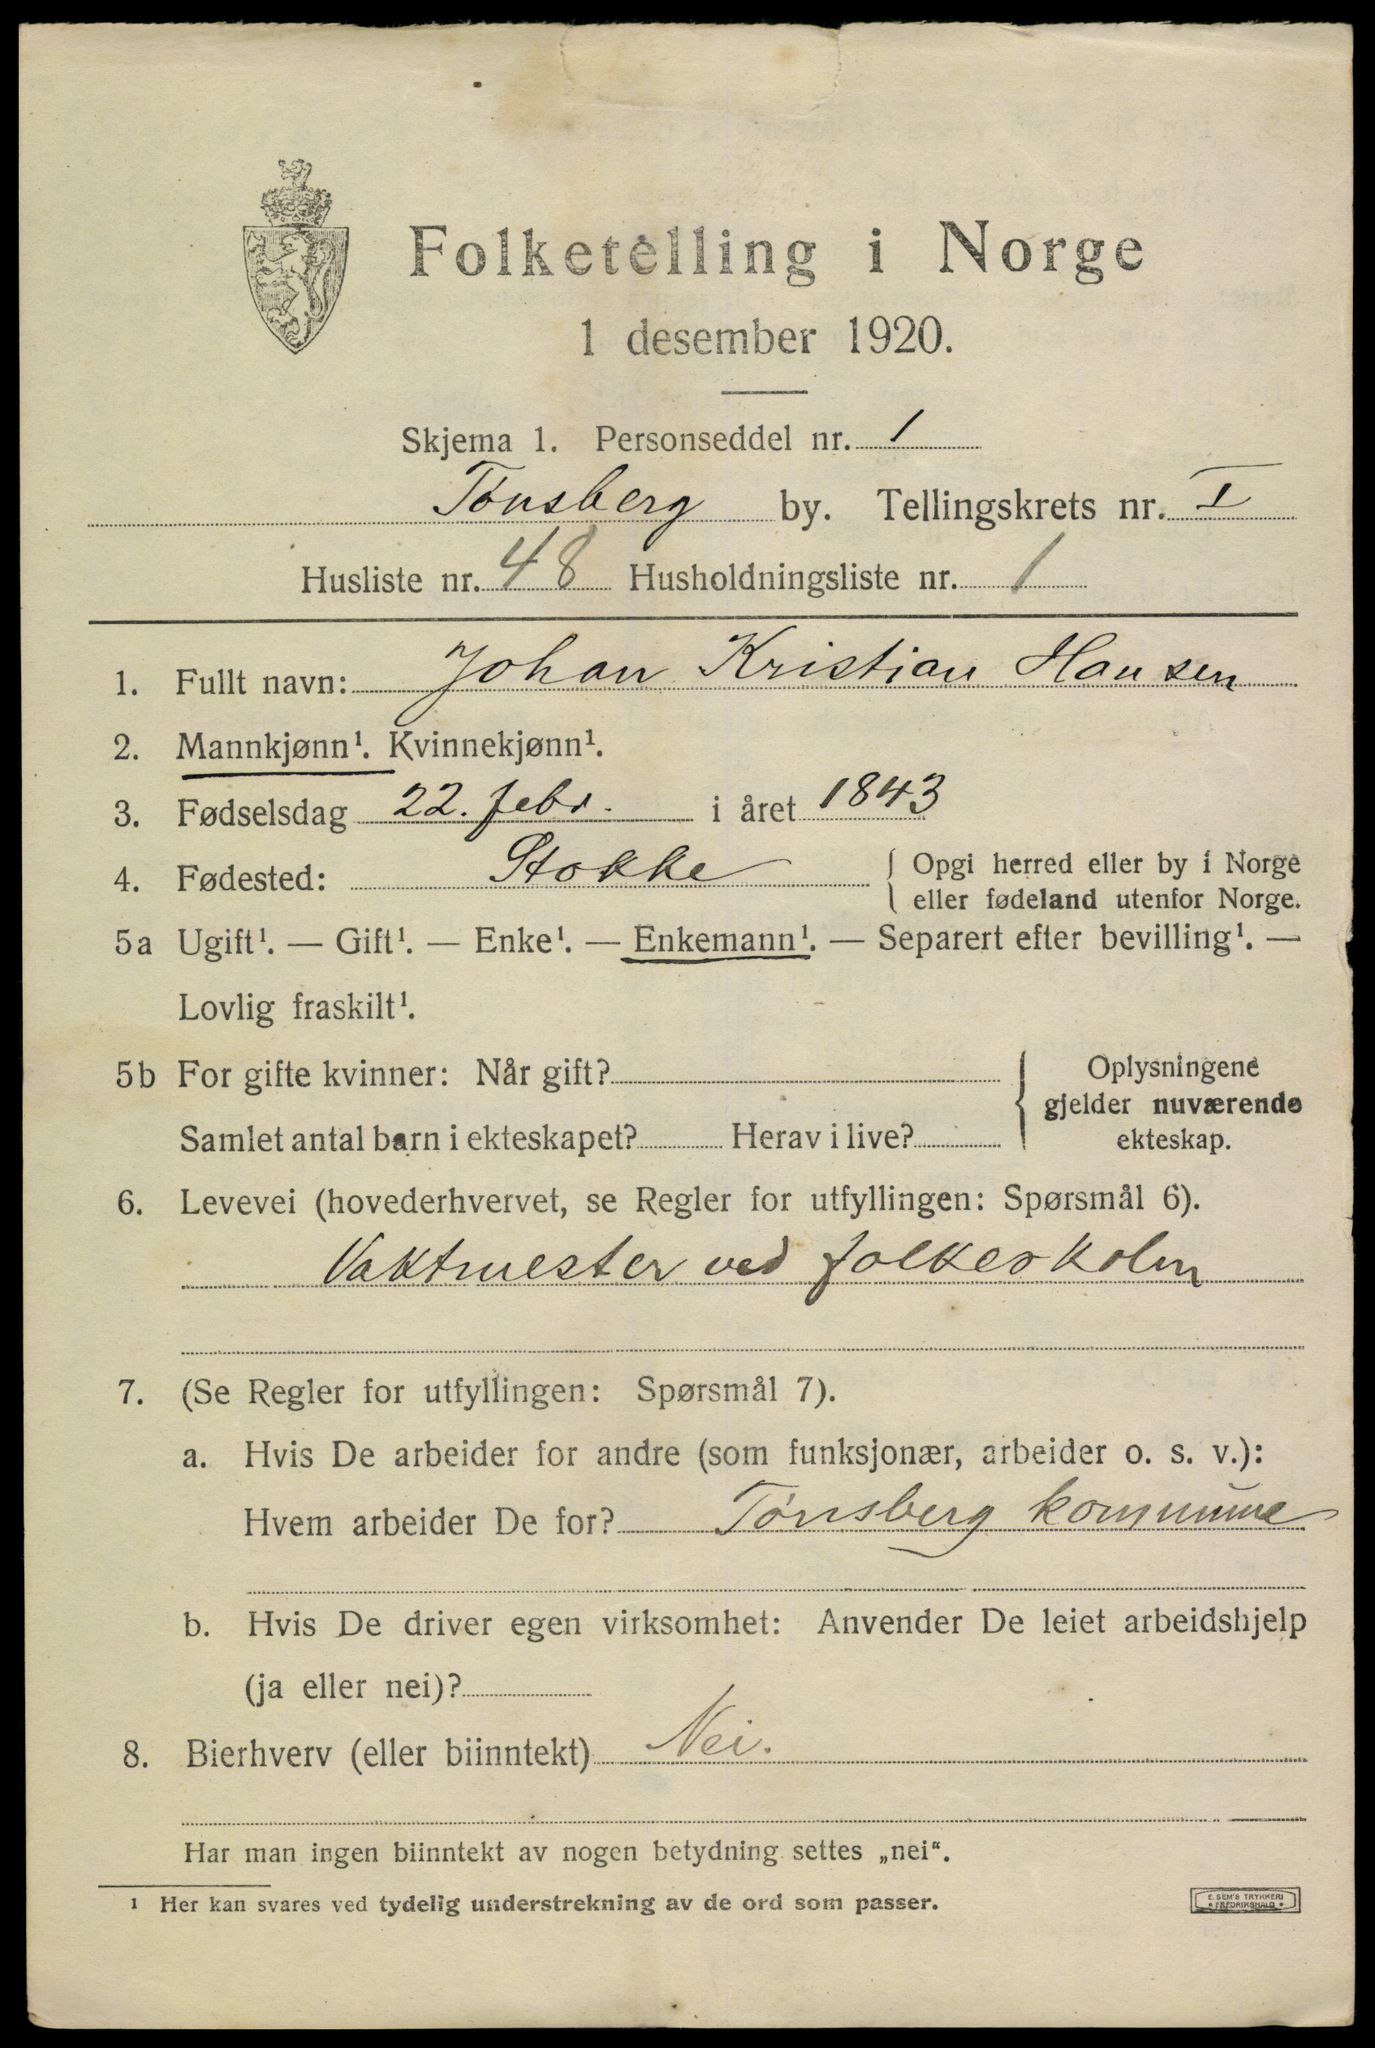 Folketelling i Norge
1 desember 1920.
Skjema 1. Personseddel nr. 1
Tønsberg by. Tellingskrets nr. I
Husliste nr. 48 Husholdningsliste nr. 1
1. Fullt navn: Johan Kristian Hansen
2. Mannkjønn¹. Kvinnekjønn¹.
3. Fødselsdag 22. febr. i året 1843
4. Fødested: Stokke { Opgi herred eller by i Norge
eller fødeland utenfor Norge.
5a Ugift¹. — Gift¹. — Enke¹. — Enkemann¹. — Separert efter bevilling¹. —
Lovlig fraskilt¹.
5b For gifte kvinner: Når gift?
Samlet antal barn i ekteskapet? Herav i live?
{ Oplysningene
gjelder nuværende
ekteskap.
6. Levevei (hovederhvervet, se Regler for utfyllingen: Spørsmål 6).
Vaktmester ved folkeskolen
7. (Se Regler for utfyllingen: Spørsmål 7).
a. Hvis De arbeider for andre (som funksjonær, arbeider o. s. v.):
Hvem arbeider De for? Tønsberg kommune
b. Hvis De driver egen virksomhet: Anvender De leiet arbeidshjelp
(ja eller nei)?
8. Bierhverv (eller biinntekt) Nei.
Har man ingen biinntekt av nogen betydning settes „nei“.
¹ Her kan svares ved tydelig understrekning av de ord som passer.
E. SEM'S TRYKKERI
• FREDRIKSHALD •